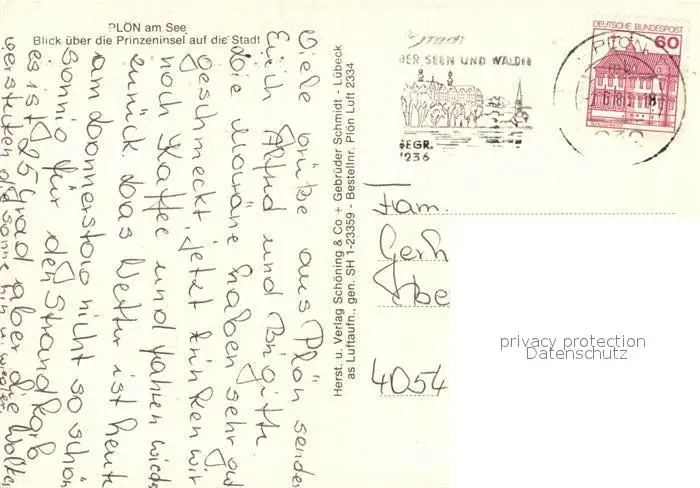 PLÖN am See
Blick über die Prinzeninsel auf die Stadt
Viele Grüße aus Plön senden
Euch Alfred und Brigitte.
die Maräne haben sehr gut
geschmeckt, jetzt trinken wir
noch Kaffee und fahren wieder
zurück. das Wetter ist heute
am Donnerstag nicht so schön
sonnig für den Strandkorb
es ist 25 Grad aber die Wolken
verstecken die Sonne hin u. wieder
Herst. u. Verlag Schöning & Co + Gebrüder Schmidt - Lübeck
as Luftaufn., gen. SH 1-23359 - Bestellnr. Plön Luft 2334
DER SEEN UND WÄLDER
GEGR.
1236
DEUTSCHE BUNDESPOST
60
PLÖN
Fam.
Gerh
4054
privacy protection
Datenschutz